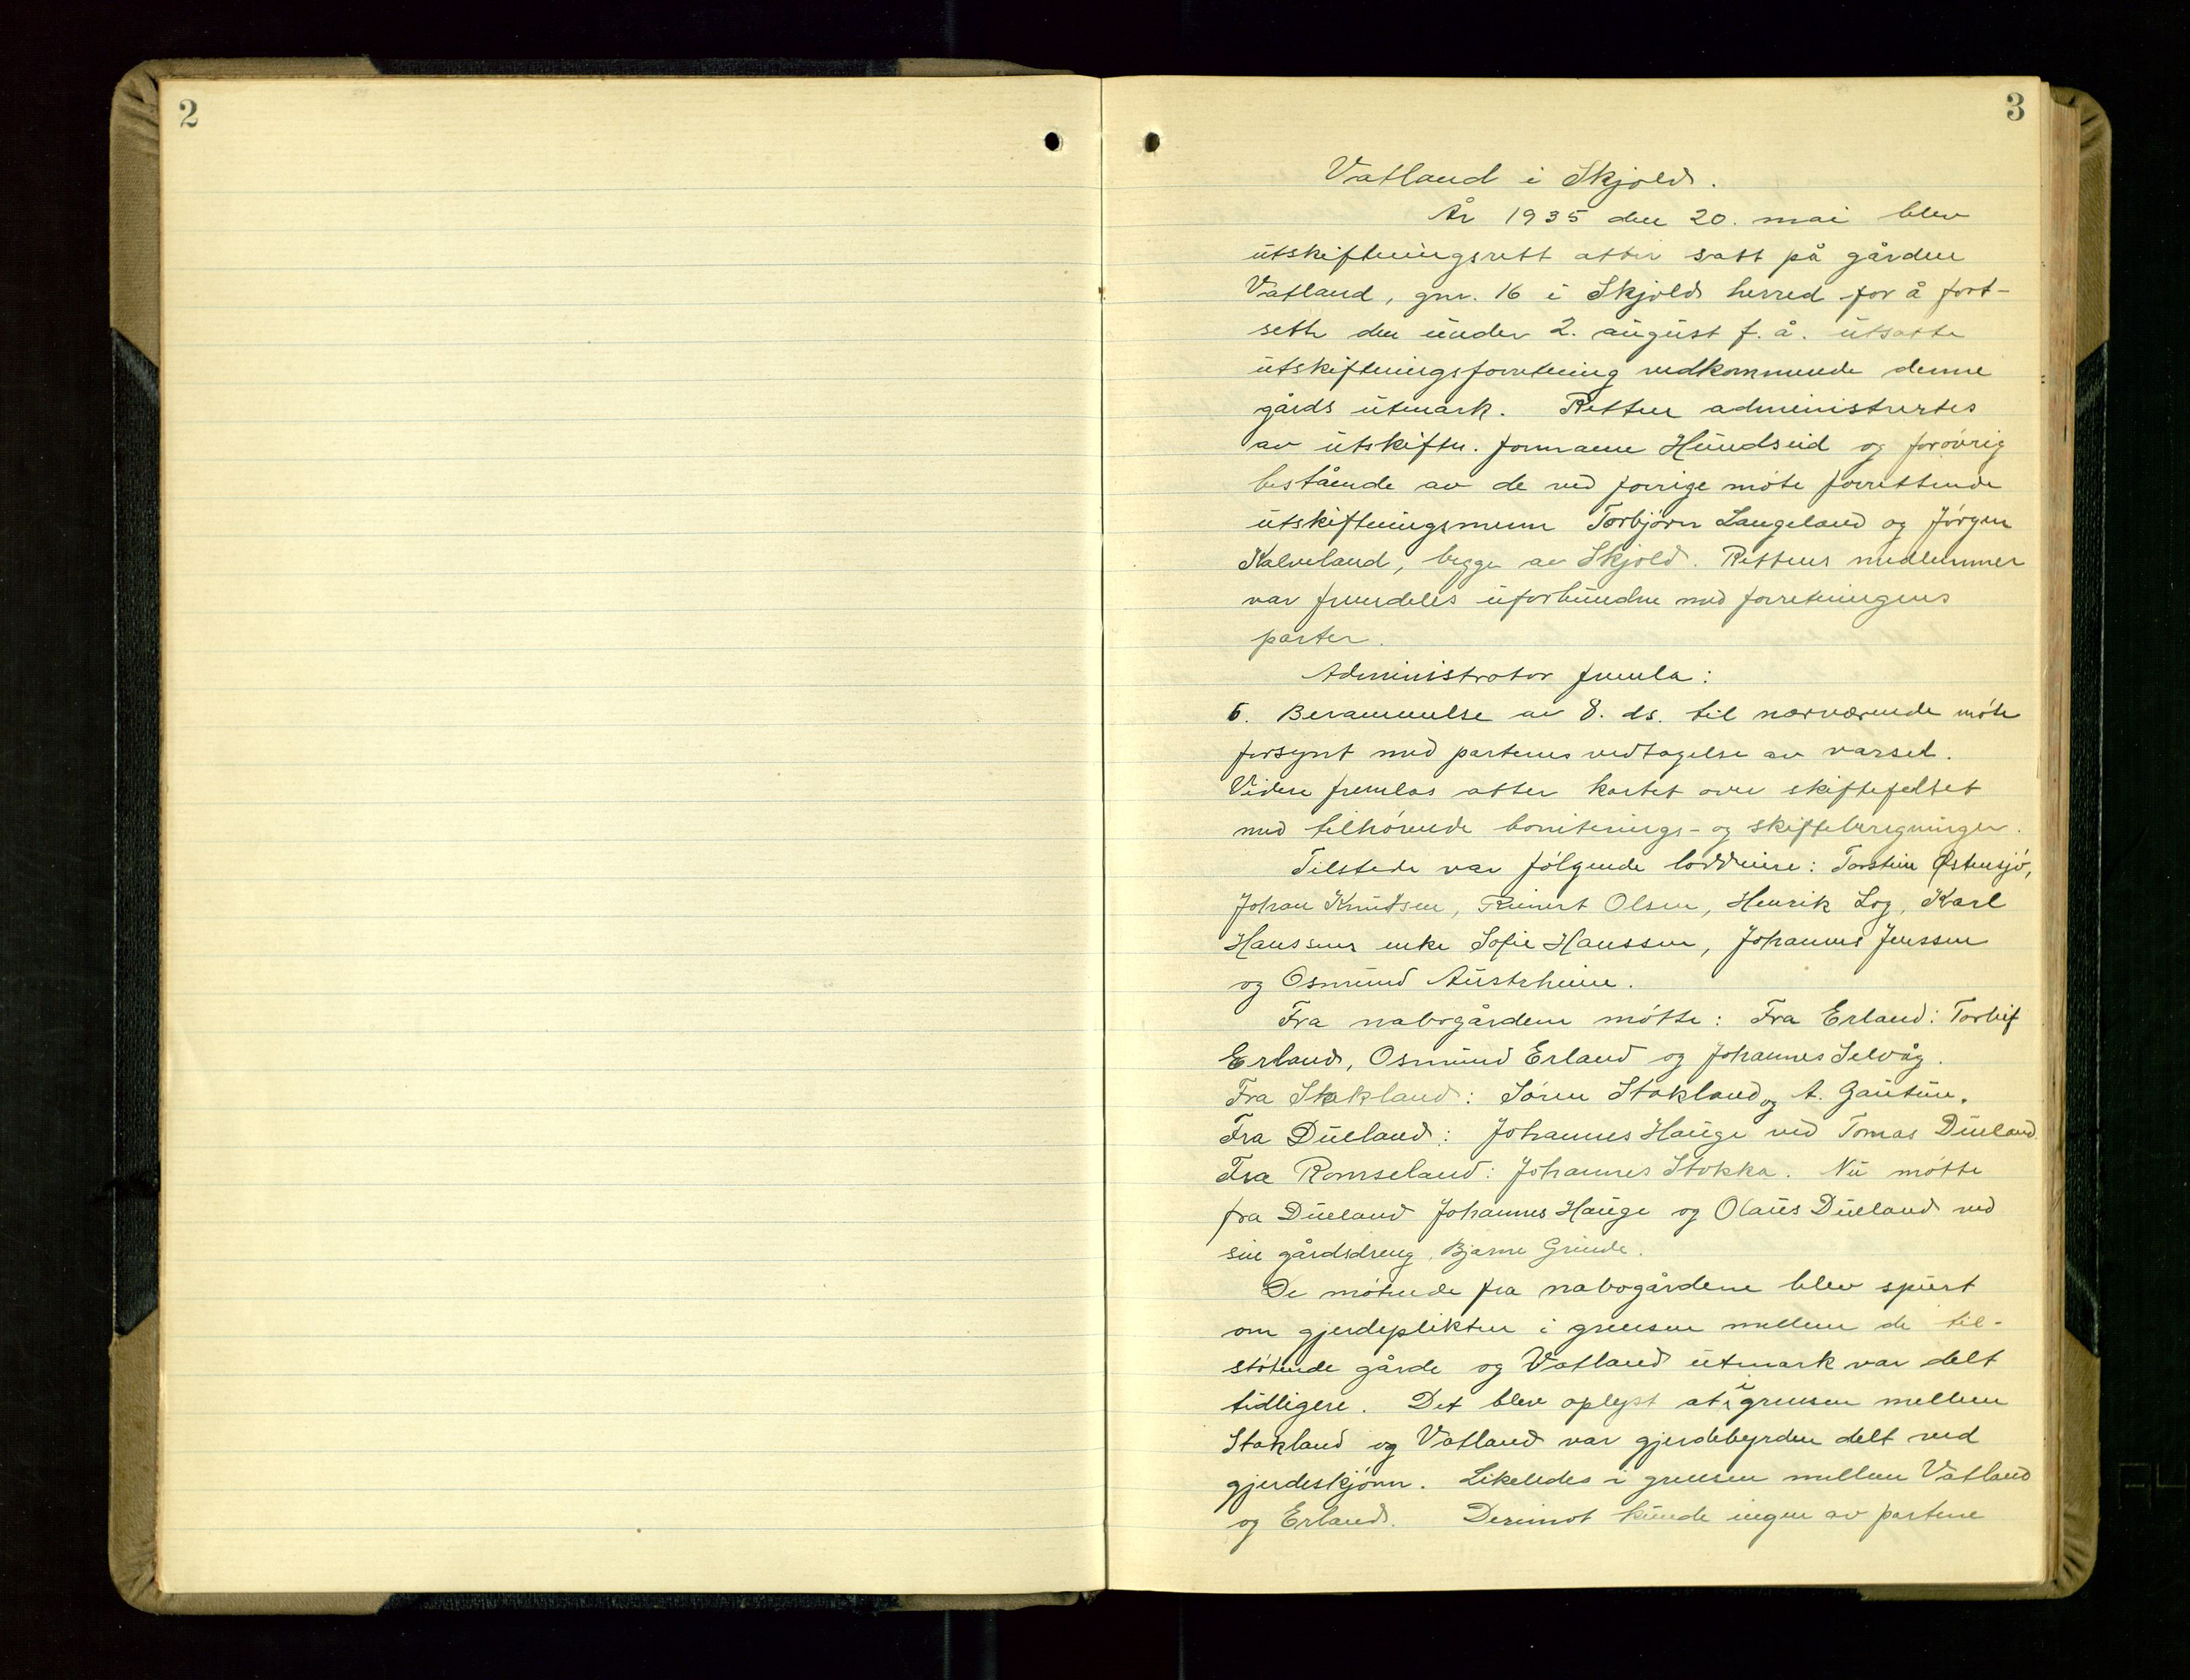 2
3
Vatland i Skjold.
År 1935 den 20. mai blev
utskiftningsrett atter satt på gården
Vatland, gnr. 16 i Skjold herred for å fort-
sette den under 2. august f. å. utsatte
utskiftningsforretning vedkommende denne
gårds utmark. Retten administrertes
av utskiftn. formann Hundseid og forøvrig
bestående av de ved forrige møte forrettende
utskiftningsmenn Torbjørn Langeland og Jørgen
Kalveland, begge av Skjold. Rettens medlemmer
var fremdeles uforbundne med forretningens
parter.
Administrator fremla:
6. Berammelse av 8. ds. til nærværende møte
forsynt med partenes vedtagelse av varsel.
Videre fremlas atter kartet over skiftefeltet
med tilhørende boniterings- og skifteberegninger.
Tilstede var følgende loddeiere: Torstein Østensjø,
Johan Knutsen, Reinert Olsen, Henrik Log, Karl
Hanssens enke Sofie Hanssen, Johannes Jenssen
og Osmund Austrheim.
Fra nabogårdene møtte: Fra Erland: Torleif
Erland, Osmund Erland og Johannes Selvåg.
Fra Stakland: Søren Stakland og A. Gautun.
Fra Dueland: Johannes Hauge ved Tomas Dueland
Fra Romseland: Johannes Stokka. Nu møtte
fra Dueland Johannes Hauge og Olaus Dueland ved
sin gårdsdreng, Bjarne Grinde.
De møtende fra nabogårdene blev spurt
om gjerdeplikten i grensen mellem de til-
støtende gårde og Vatland utmark var delt
tidligere. Det blev oplyst at i grensen mellem
Stakland og Vatland var gjerdebyrden delt ved
gjerdeskjønn. Likeledes i grensen mellem Vatland
og Erland. Derimot kunde ingen av partene